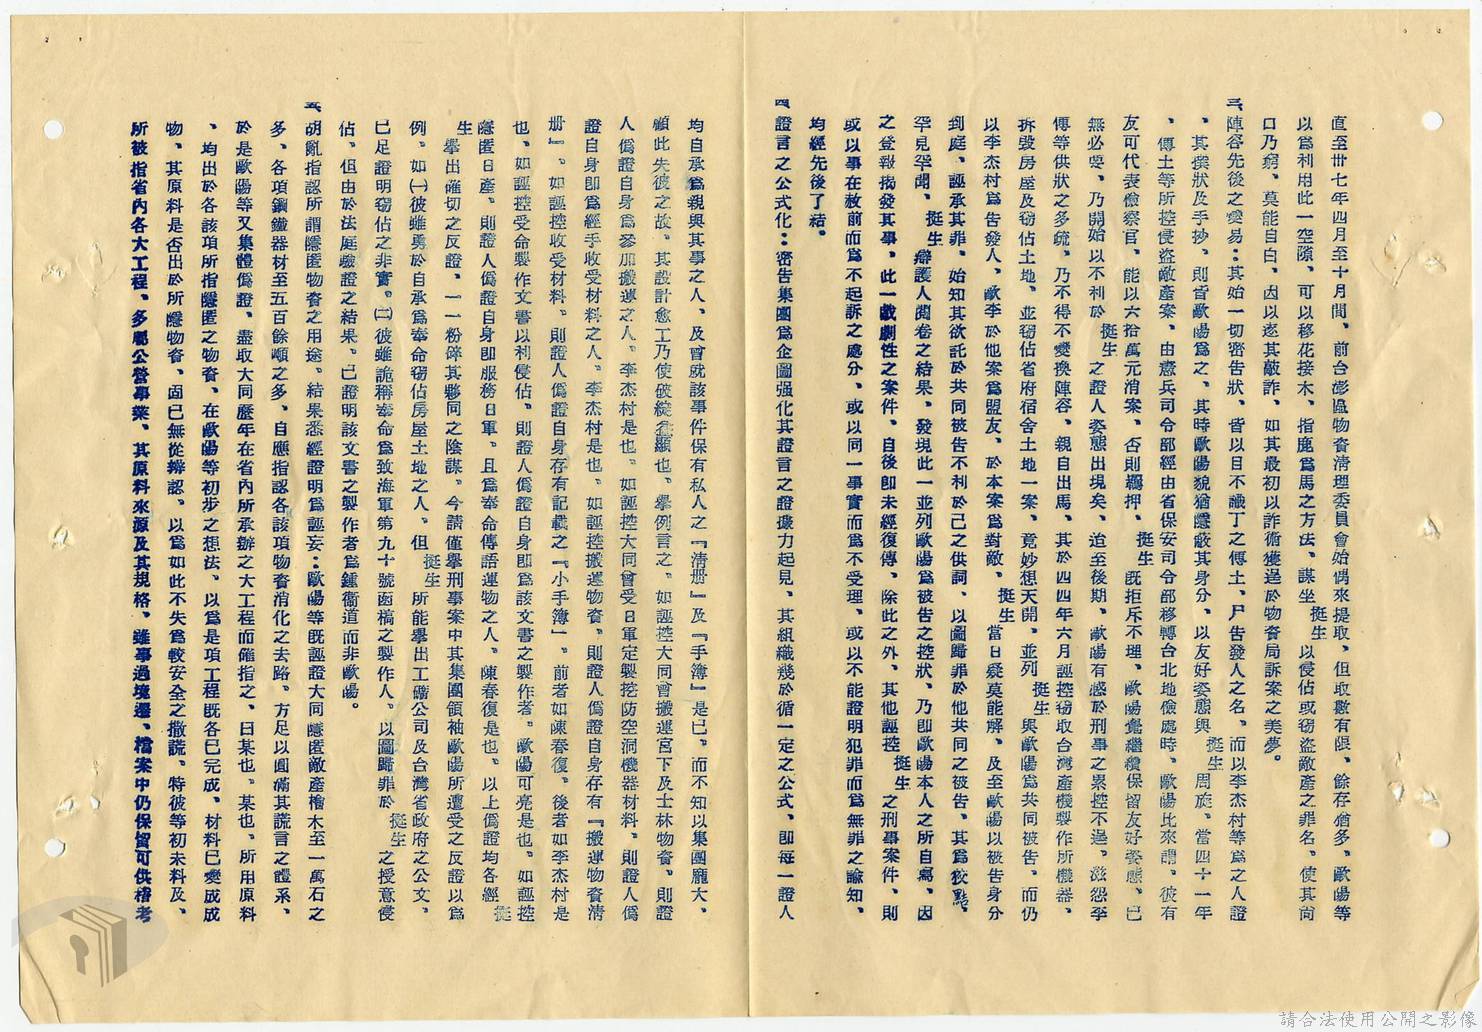 直至卅七年四月至十月間、前台澎區物資清理委員會始偶來提取、但取數有限、餘存猶多、歐陽等
以爲利用此一空隙、可以移花接木、指鹿爲馬之方法、謀坐挺生以侵佔或竊盜敵產之罪名。使其尚
口乃窮、莫能自白、因以遂其敲詐、如其最初以詐術獲逞於物資局訴案之美夢。
三、陣容先後之變易：其始一切密告狀、皆以目不識丁之傅土、尸告發人之名、而以李杰村等爲之人證
、其撰狀及手抄、則皆歐陽爲之、其時歐陽貌猶隱蔽其身分、以友好姿態與挺生周旋。當四十一年
、傅土等所控侵盜敵產案、由憲兵司令部經由省保安司令部移轉台北地儉處時、歐陽比來謂、彼有
友可代表儉察官、能以六拾萬元消案、否則羈押、挺生既拒斥不理、歐陽覺繼續保留友好姿態、已
無必要、乃開始以不利於挺生之證人姿態出現矣、迨至後期、歐陽有憾於刑事之累控不逞、滋怨李
傅等供狀之多疏、乃不得不變換陣容、親自出馬、其於四四年六月誣控竊取台灣產機製作所機器、
拆毀房屋及竊佔土地、並竊佔省府宿舍土地一案、竟妙想天開、並列挺生與歐陽爲共同被告、而仍
以李杰村爲告發人、歐李於他案爲盟友、於本案爲對敵、挺生當日疑莫能解、及至歐陽以被告身分
到庭、誣承其罪、始知其欲託於共同被告不利於己之供詞、以圖歸罪於他共同之被告、其爲狡黠、
罕見罕聞、挺生辯護人閱卷之結果、發現此一並列歐陽爲被告之控狀、乃即歐陽本人之所自寫、因
之登報揭發其事、此一戲劇性之案件、自後卽未經復傳、除此之外、其他誣控挺生之刑事案件、則
或以事在赦前而爲不起訴之處分、或以同一事實而爲不受理、或以不能證明犯罪而爲無罪之諭知、
均經先後了結。
四、證言之公式化：密告集團爲企圖强化其證言之證據力起見、其組織幾於循一定之公式、卽每一證人
均自承爲親與其事之人、及曾就該事件保有私人之『清册』及『手簿』是已。而不知以集團龐大、
顧此失彼之故。其設計愈工乃使破綻益顯也。舉例言之、如誣控大同曾搬運宮下及士林物資、則證
人僞證自身爲參加搬運之人、李杰村是也。如誣控大同曾受日軍定製挖防空洞機器材料、則證人僞
證自身卽爲經手收受材料之人、李杰村是也。如誣控搬運物資、則證人僞證自身存有『搬運物資淸
册』、如誣控收受材料、則證人僞證自身存有記載之『小手簿』、前者如陳春復。後者如李杰村是
也、如誣控受命製作文書以利侵佔、則證人僞證自身卽爲該文書之製作者、歐陽可亮是也、如誣控
隱匿日產、則證人僞證自身卽服務日軍、且爲奉命傳語運物之人、陳春復是也、以上僞證均各經挺
生舉出確切之反證、一一粉碎其夥同之陰謀、今請僅舉刑事案中其集團領袖歐陽所遭受之反證以爲
例、如㈠彼雖勇於自承爲奉命竊佔房屋土地之人、但挺生所能舉出工礦公司及台灣省政府之公文、
已足證明竊佔之非實。㈡彼雖詭稱奉命爲致海軍第九十號函稿之製作人、以圖歸罪於挺生之授意侵
佔、但由於法庭驗證之結果、已證明該文書之製作者爲鍾衞道而非歐陽。
五、胡亂指認所謂隱匿物資之用途。結果悉經證明爲誣妄：歐陽等既誣證大同隱匿敵產檜木至一萬石之
多、各項鋼鐵器材至五百餘噸之多、自應指認各該項物資消化之去路、方足以圓滿其謊言之體系、
於是歐陽等又集體僞證、盡取大同歷年在省內所承辦之大工程而僱指之、曰某也。某也。所用原料
、均出於各該項所指隱匿之物資、在歐陽等初步之想法、以爲是項工程既各已完成、材料已變成成
物、其原料是否出於所隱物資、固已無從辯認、以爲如此不失爲較安全之撒謊、特彼等初未料及、
所被指省內各大工程、多屬公營事業、其原料來源及其規格、雖事過境遷、檔案中仍保留可供稽考
請合法使用公開之影像